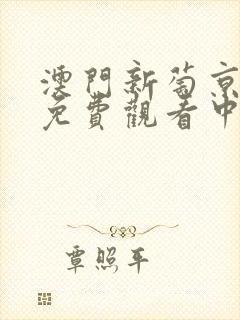 澳門新葡京
免費觀看中
覃照平